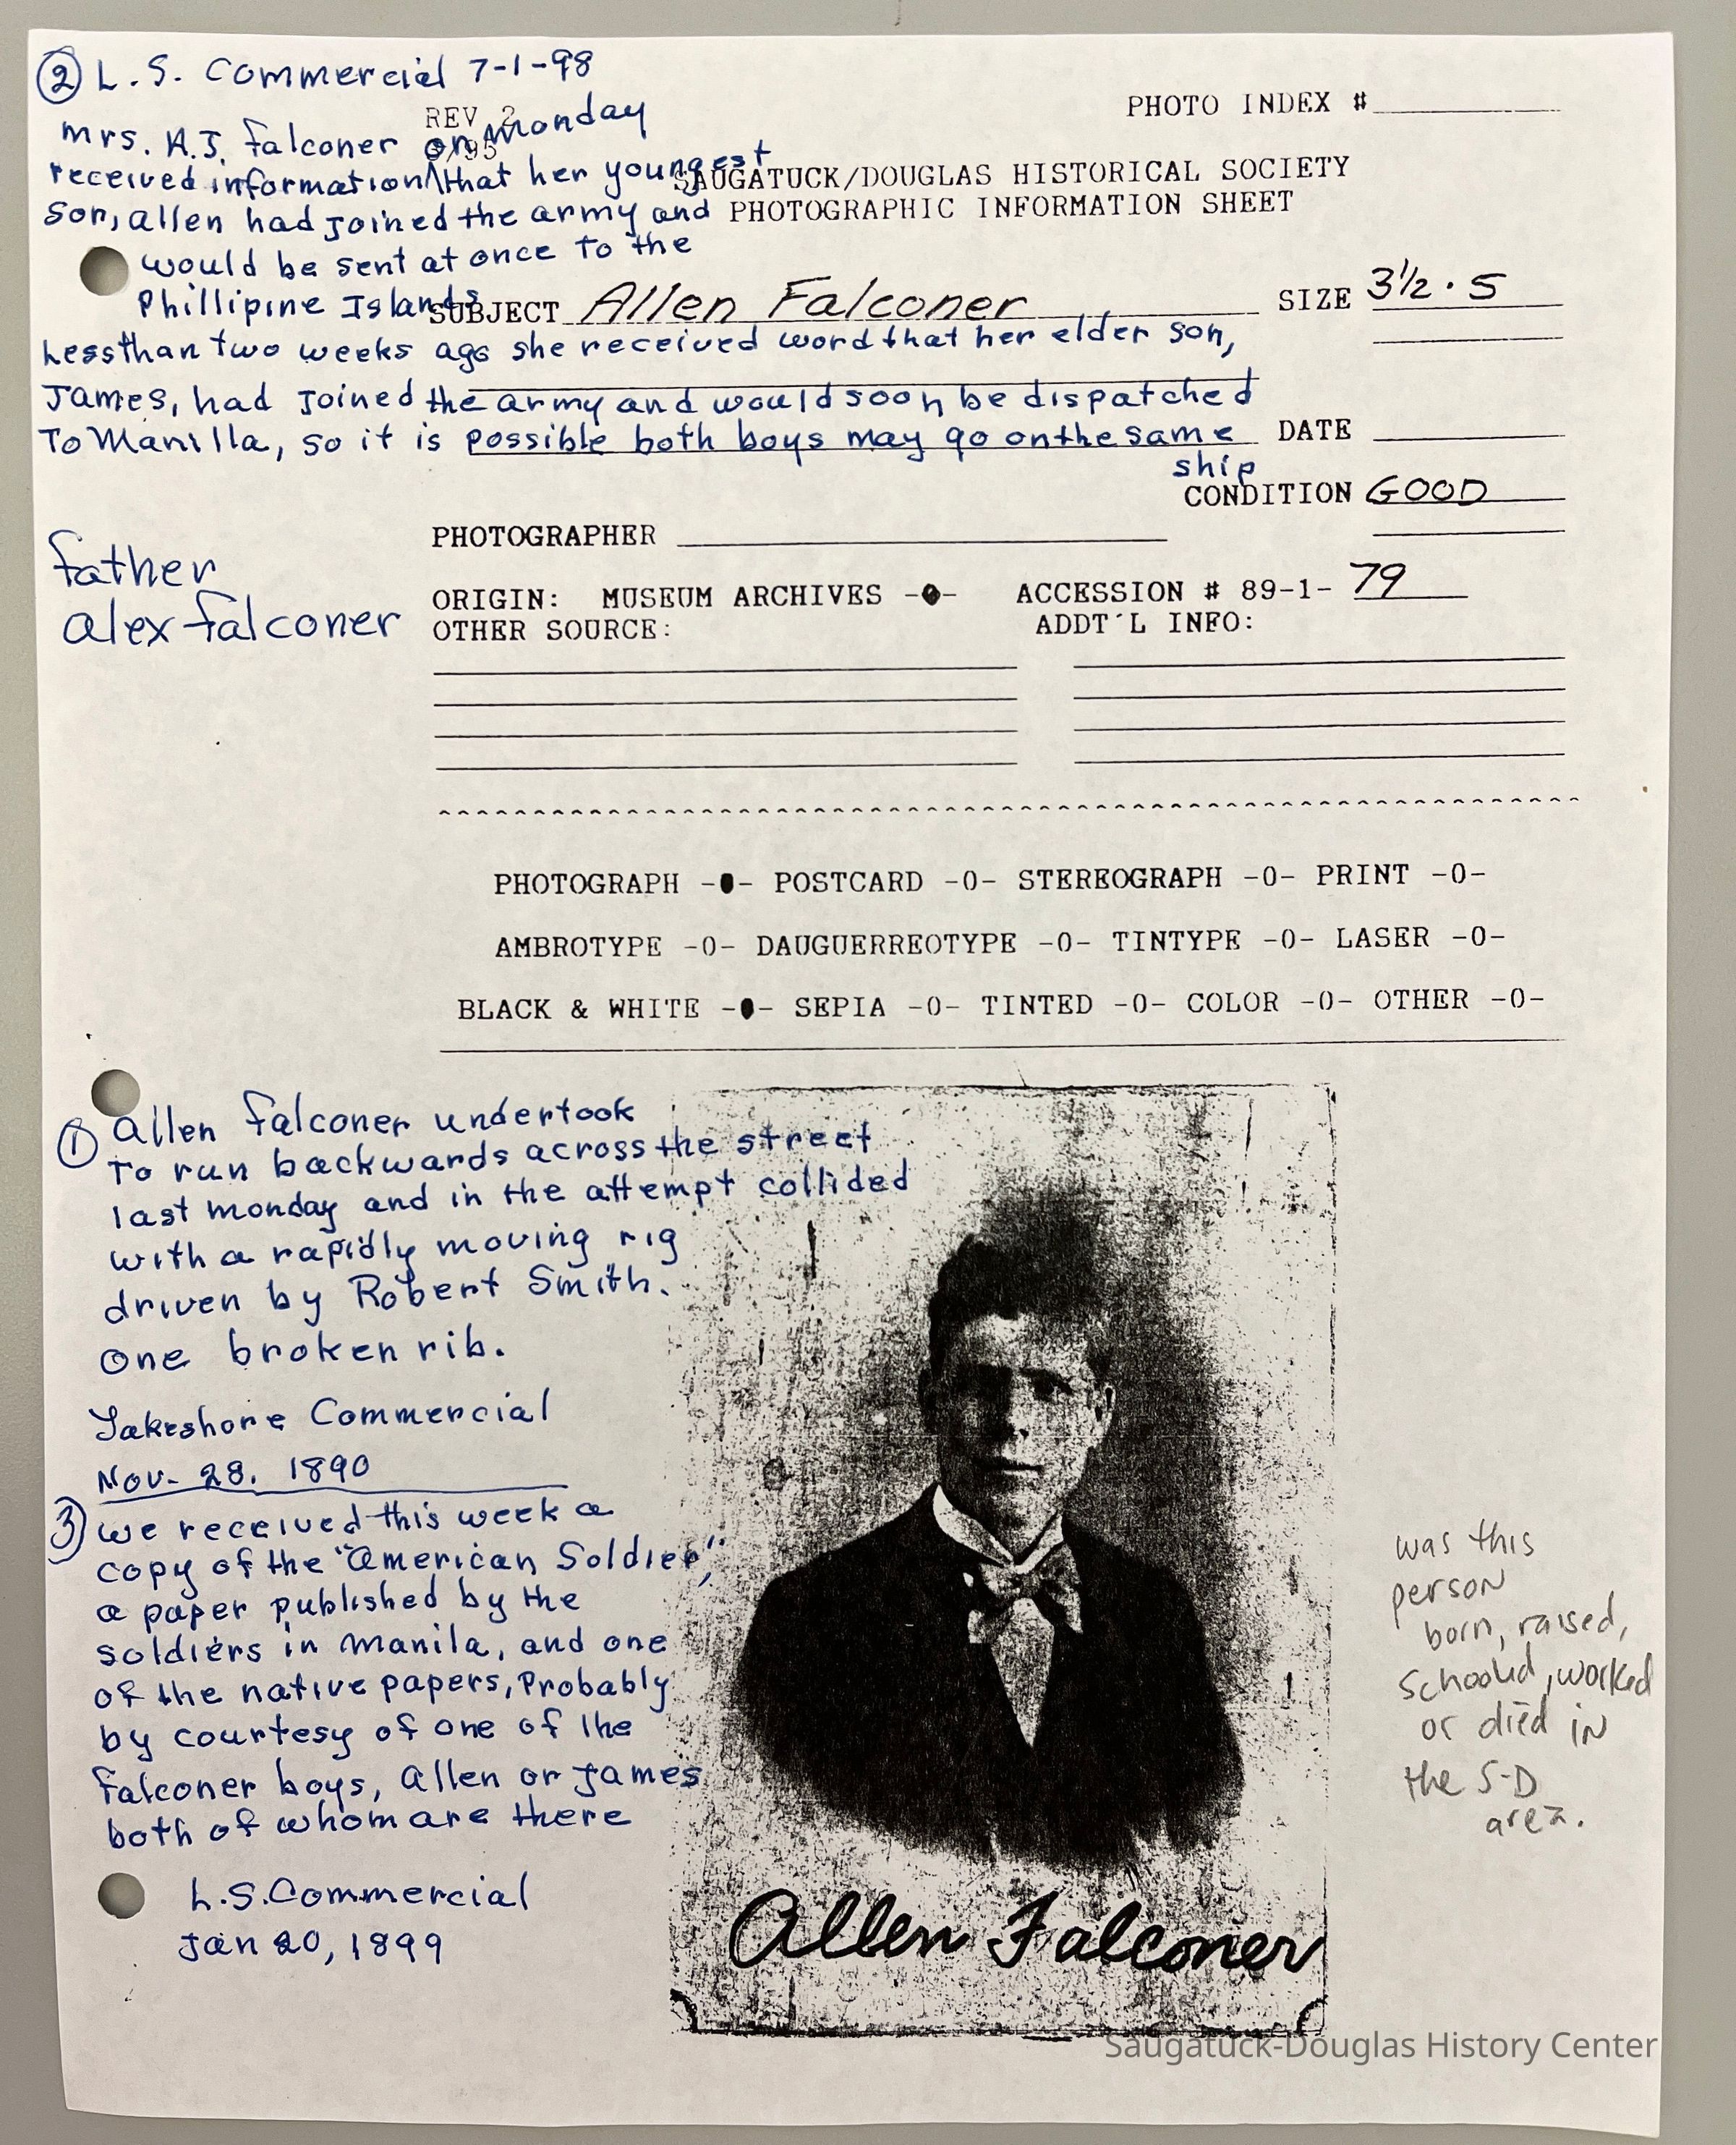 ② L.S. Commercial 7-1-98
Mrs. A.J. Falconer on Monday
received information that her youngest
son, Allen had joined the army and
would be sent at once to the
Phillipine Islands
Less than two weeks ago she received word that her elder son,
James, had joined the army and would soon be dispatched
To Manilla, so it is possible both boys may go on the same
ship
REV 2
/95
PHOTO INDEX #
SAUGATUCK/DOUGLAS HISTORICAL SOCIETY
PHOTOGRAPHIC INFORMATION SHEET
SUBJECT Allen Falconer SIZE 3 1/2 · 5
DATE
CONDITION GOOD
PHOTOGRAPHER
father
Alex Falconer
ORIGIN: MUSEUM ARCHIVES -0- ACCESSION # 89-1- 79
OTHER SOURCE: ADDT´L INFO:
PHOTOGRAPH -0- POSTCARD -0- STEREOGRAPH -0- PRINT -0-
AMBROTYPE -0- DAUGUERREOTYPE -0- TINTYPE -0- LASER -0-
BLACK & WHITE -0- SEPIA -0- TINTED -0- COLOR -0- OTHER -0-
① Allen Falconer undertook
to run backwards across the street
last monday and in the attempt collided
with a rapidly moving rig
driven by Robert Smith.
One broken rib.
Lakeshore Commercial
Nov- 28. 1890
③ We received this week a
copy of the "American Soldier,"
a paper published by the
soldiers in Manila, and one
of the native papers, Probably
by courtesy of one of the
Falconer boys, Allen or James
both of whom are there
L.S. Commercial
Jan 20, 1899
was this
person
born, raised,
schooled, worked
or died in
the S-D
area.
Allen Falconer
Saugatuck-Douglas History Center